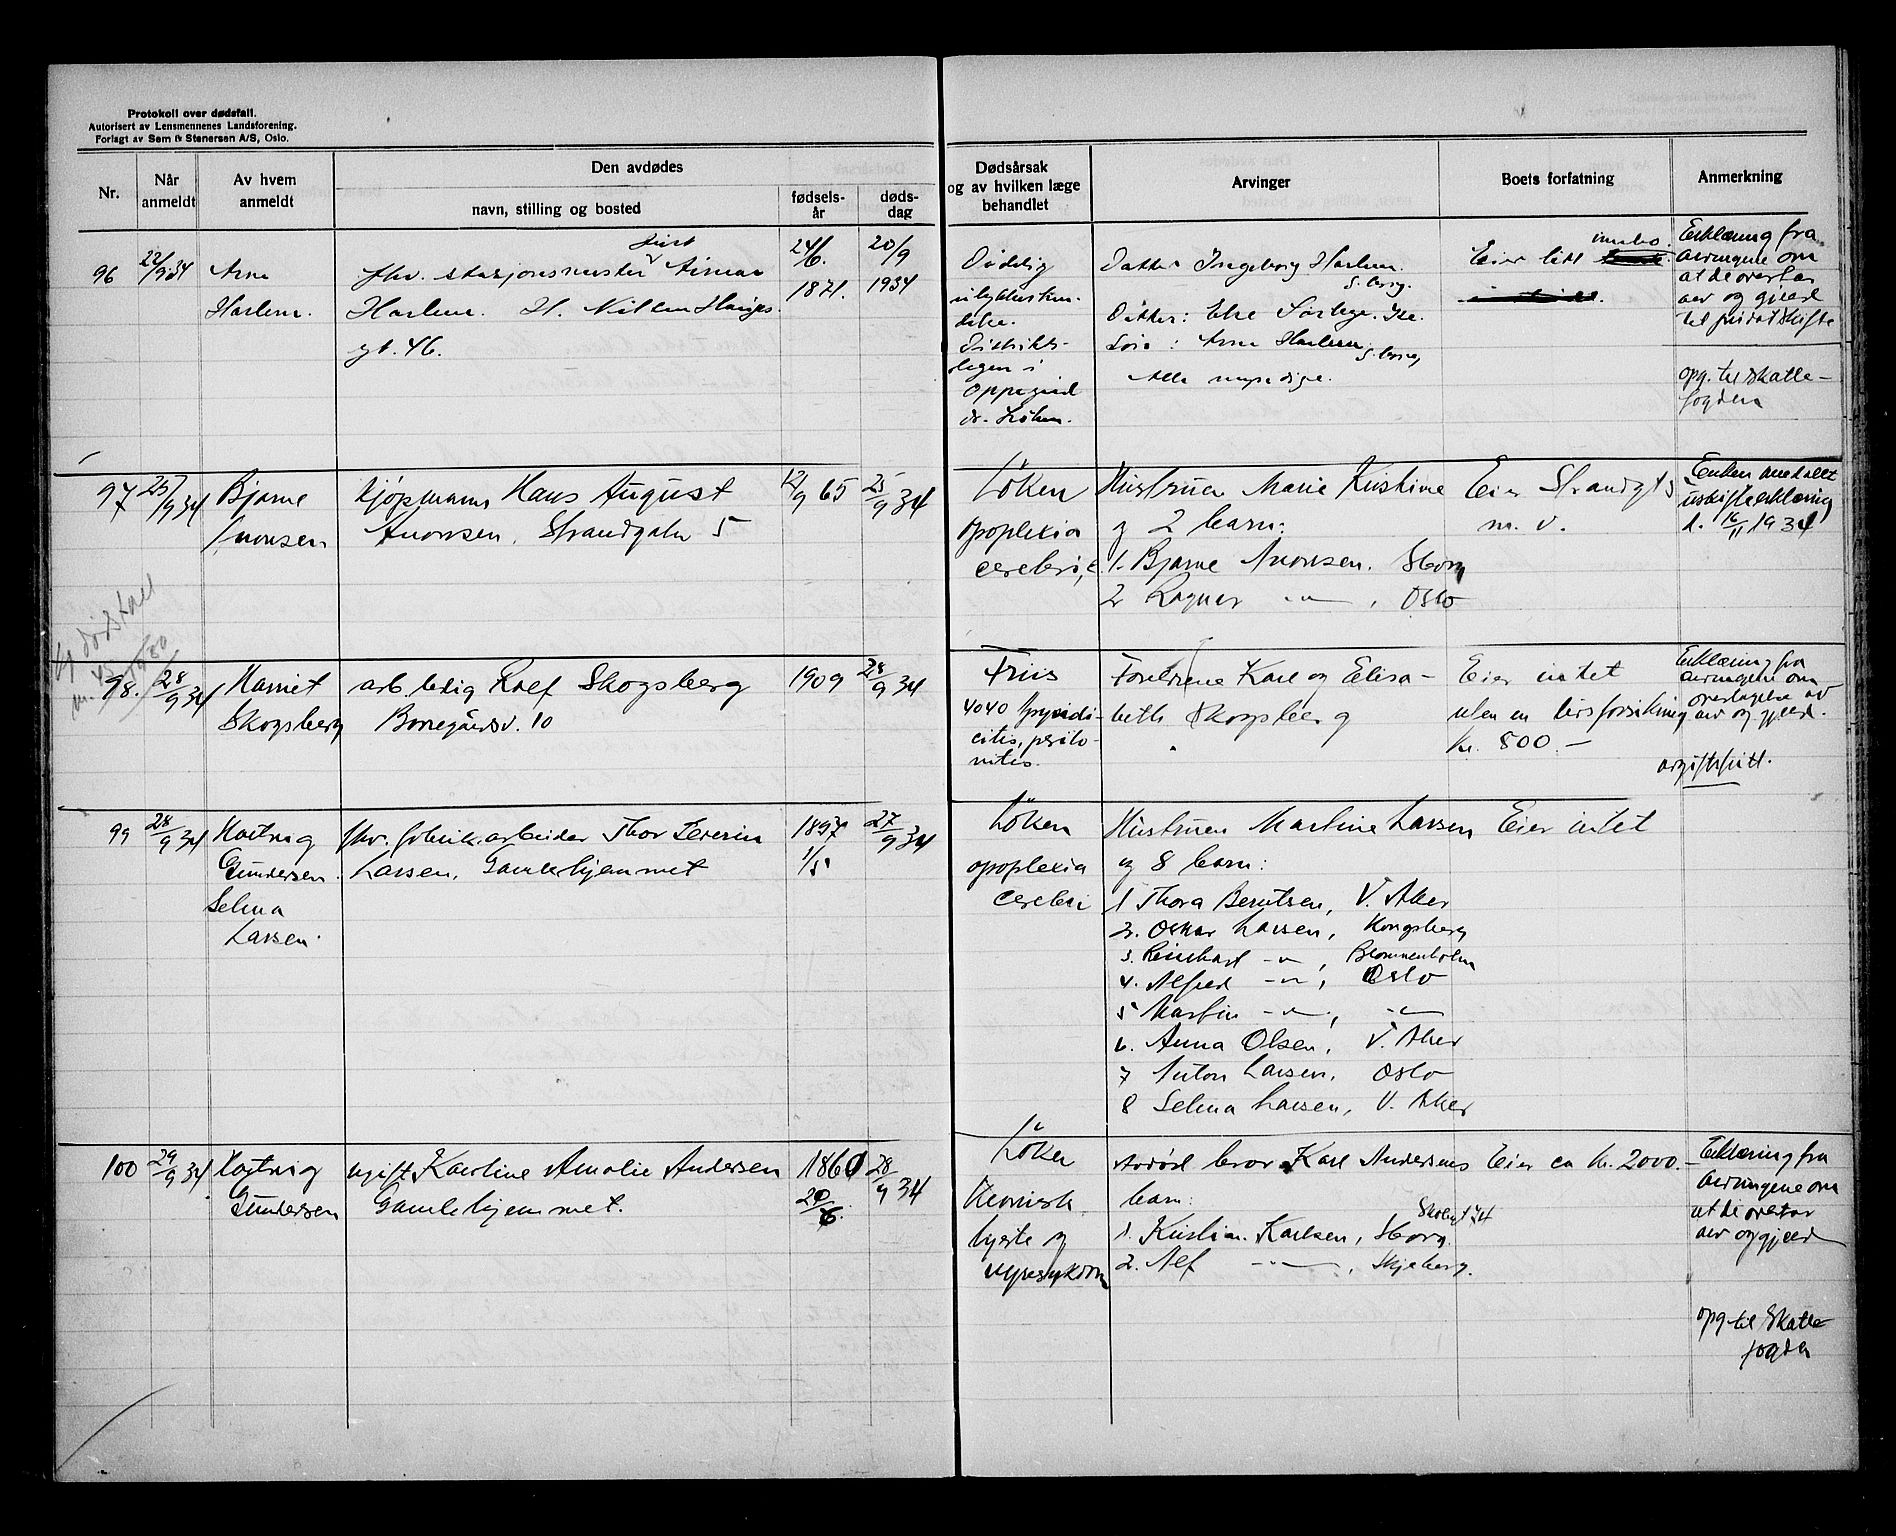 Protokoll over dødsfall.
Autorisert av Lensmennenes Landsforening.
Forlagt av Sem & Stenersen A/S, Oslo.
Nr.
Når anmeldt
Av hvem anmeldt
Den avdødes
navn, stilling og bosted
fødsels-år
døds-dag
Dødsårsak og av hvilken læge behandlet
Arvinger
Boets forfatning
Anmerkning
96
22/9 34
Arne
Harlem.
fhv. stasjonsmester
Harlem. H. Nilsen Hauges
gt. 46.
24/6.
1871.
20/9
1934
Dødelig
Distrikts-
legen i
Oppegård
dr.
Datter Ingeborg Harlem.
S.borg.
Datter: Else
Søn: Arne Harlem
S.borg,
Alle myndige.
innbo.
Eier litt
Erklæring fra
arvingene om
at de overtar
arv og gjeld
til privat skifte
opg. til skatte-
fogden
97
25/9 34
Bjarne
Aronsen
Kjøpmann Hans August
Aronsen, Strandgaten 5
12/9 65
25/9 34
Löken
apoplexia
cerebri
Hustruen Marie Kristine
og 2 barn:
1. Bjarne Aronsen. Sborg
2 Ragnar -"- , Oslo
Eier Strandgt 5
m. v.
Enken meddelt
uskifteerklæring
d. 16/11 1934
98.
28/9 34
Harriet
Skogsberg
arb. ledig Rolf Skogsberg
Borregårdsv. 10
1909
28/9 34
Friis
4040
citis, perito-
nitis.
Foreldrene Karl og Elisa-
beth Skogsberg
Eier intet
uten en livsforsikring
kr. 800.-
Erklæring fra
arvingene om
overtagelse av
arv og gjeld.
avgiftsfritt.
99
28/9 34
Hartvig
Gundersen.
Selma
Larsen.
fhv. fabrikarbeider Thor Severin
Larsen, Gamlehjemmet
1/5
27/9 34
Löken
apoplexia
cerebri
Hustruen Martine Larsen
og 8 barn:
1 Thora Berntsen, V. Aker
2. Oskar Larsen, Kongsberg
3. Reinhart -"- , Blommenholm
4. Alfred -"- , Oslo
5 Martin -"- , -"-
6. Anna Olsen, V. Aker
7 Anton Larsen, Oslo
8 Selma Larsen, V. Aker
Eier intet
100
29/9 34
Hartvig
Gundersen
ugift Karoline Amalie Andersen
Gamlehjemmet.
1860
28/9 34
Löken
Kronisk
hjerte og
nyresykdom
Avdød bror Karl Andersens
barn:
1. Kristian Karlsen, Sborg.
2. Alf -"- , Skjeberg.
Eier ca kr. 2000.-
Erklæring fra
arvingene om
at de overtar
arv og gjeld
opg. til skatte-
fogden